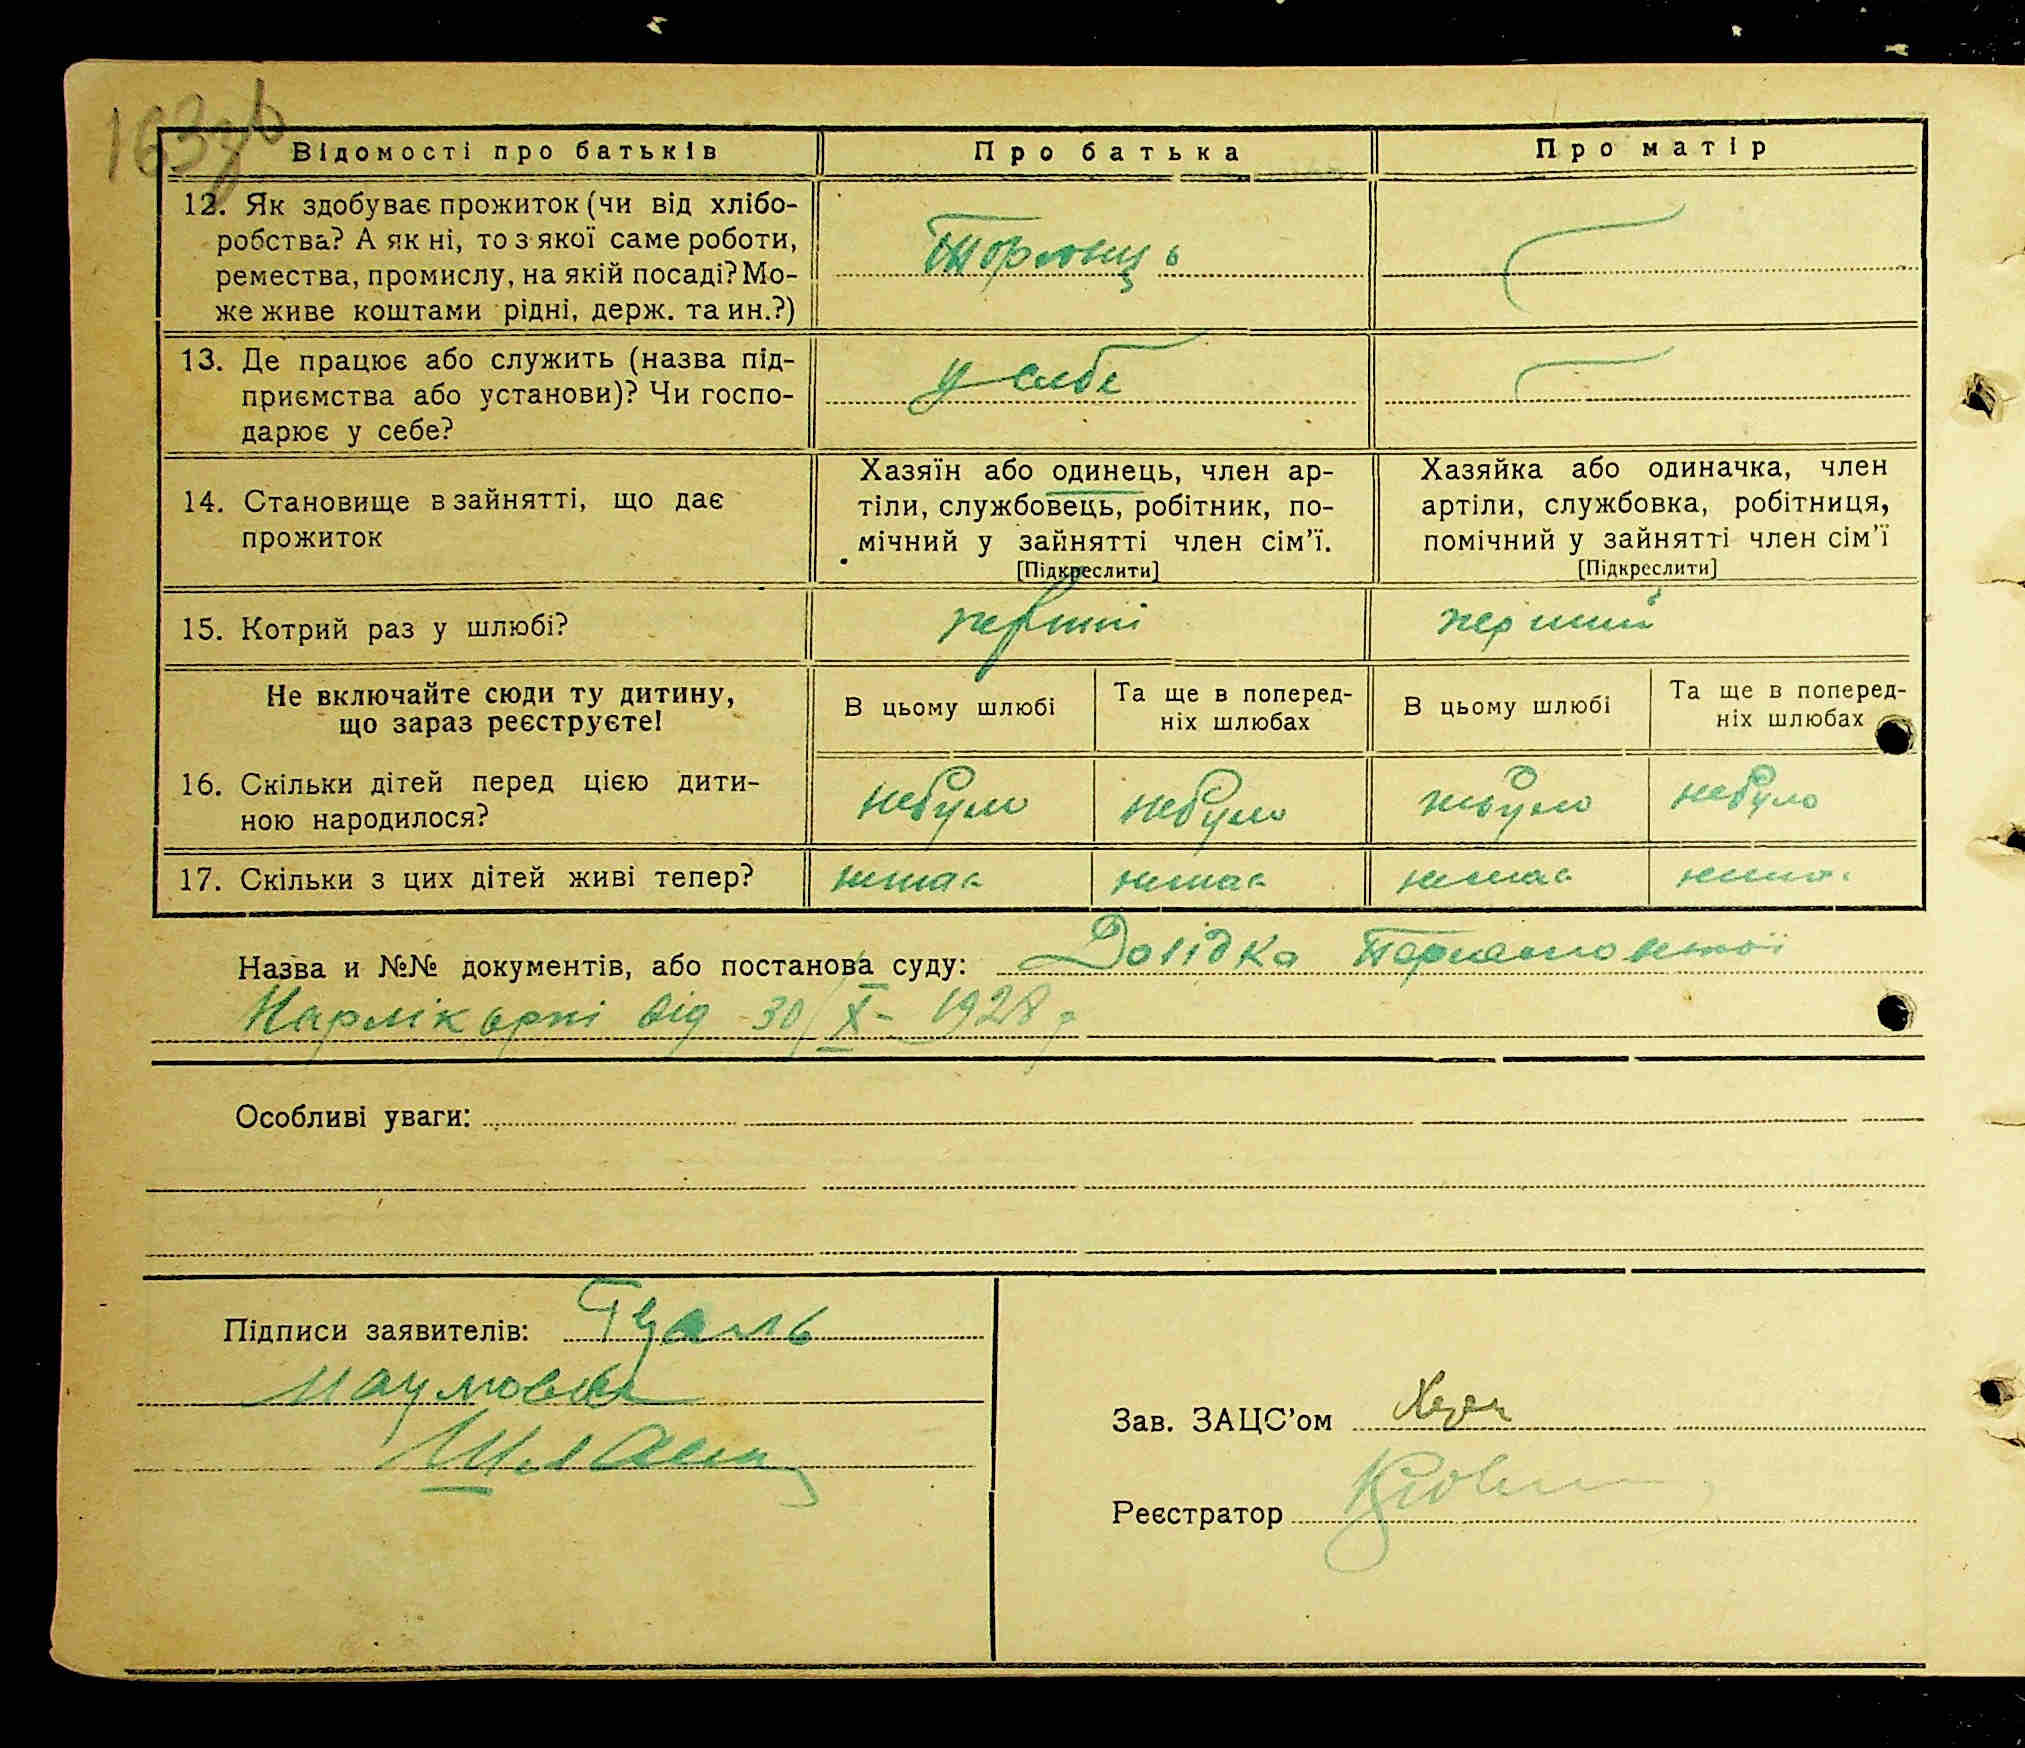 163зв
Відомості про батьків
Про батька
Про матір
12. Як здобуває прожиток (чи від хлібо-
робства? А як ні, то з якої саме роботи,
ремества, промислу, на якій посаді? Мо-
же живе коштами рідні, держ. та ин.?)
Торговець
13. Де працює або служить (назва під-
приємства або установи)? Чи госпо-
дарює у себе?
у себе
14. Становище в зайнятті, що дає
прожиток
Хазяїн або одинець, член ар-
тіли, службовець, робітник, по-
мічний у зайнятті член сім'ї.
[Підкреслити]
Хазяйка або одиначка, член
артіли, службовка, робітниця,
помічний у зайнятті член сім'ї
[Підкреслити]
15. Котрий раз у шлюбі?
перший
перший
Не включайте сюди ту дитину,
що зараз реєструєте!
В цьому шлюбі
Та ще в поперед-
ніх шлюбах
В цьому шлюбі
Та ще в поперед-
ніх шлюбах
16. Скільки дітей перед цією дити-
ною народилося?
небуло
небуло
небуло
небуло
17. Скільки з цих дітей живі тепер?
немає
немає
немає
немає
Назва и №№ документів, або постанова суду: Довідка
від 30/X- 1928 р
Особливі уваги:
Підписи заявителів:
Наумовна
Зав. ЗАЦС'ом
Реєстратор